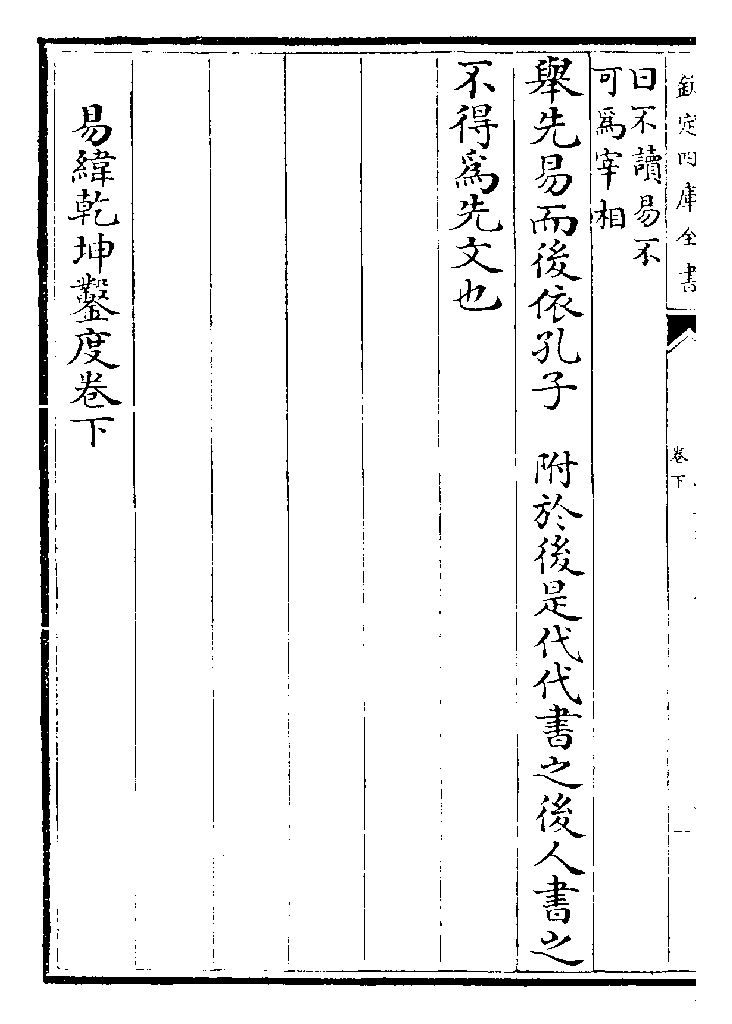 欽定四庫全書
卷下
曰不讀易不
可爲宰相
舉先易而後依孔子　附於後是代代書之後人書之
不得爲先文也
易緯乾坤鑿度卷下